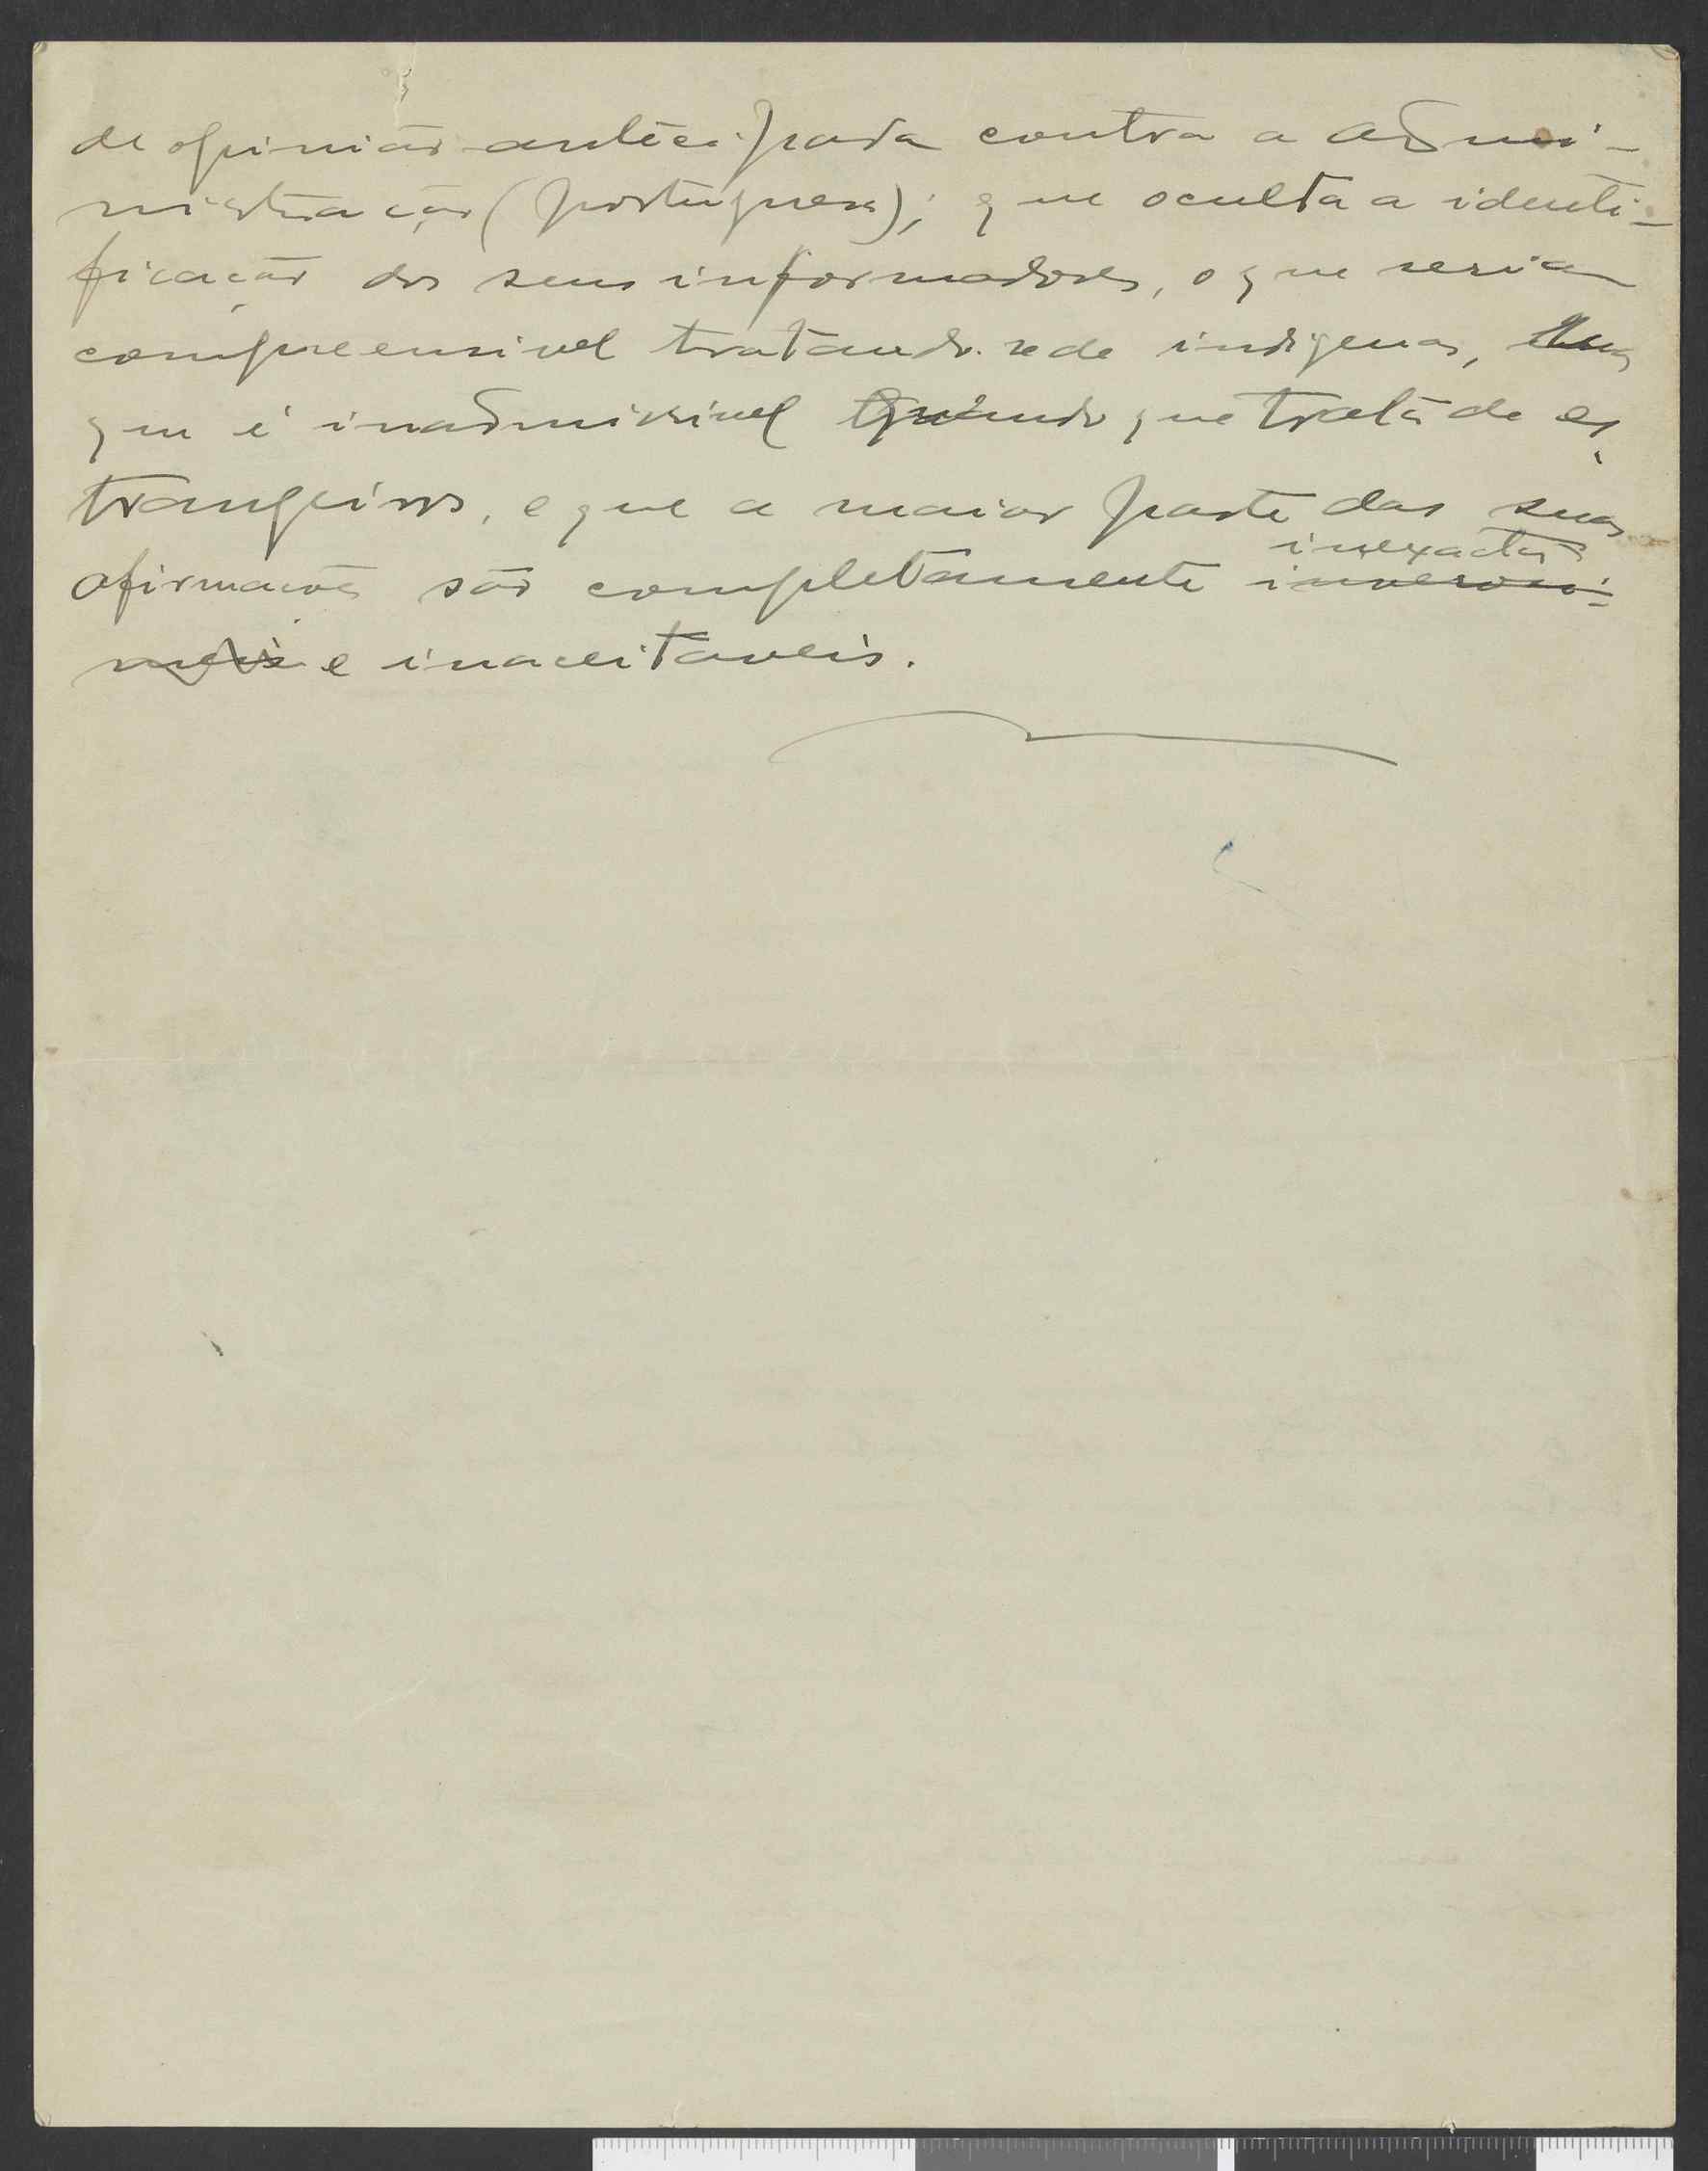 de opinião antecipada contra a admi-
nistração (portuguesa); que oculta a identi-
ficação dos seus informadores, o que seria
compreensivel tratando-se de indigenas, mas
que é inadmissivel quando que trata de es-
trangeiros, e que a maior parte das suas
inexactas
afirmações são completamente inverosi-
meis e inaceitaveis.